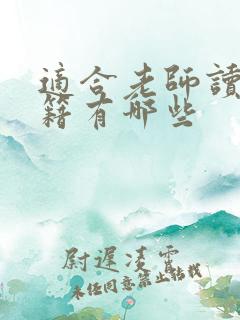 適合老師讀
籍有哪些
尉遲凌霄
未经同意禁止转载